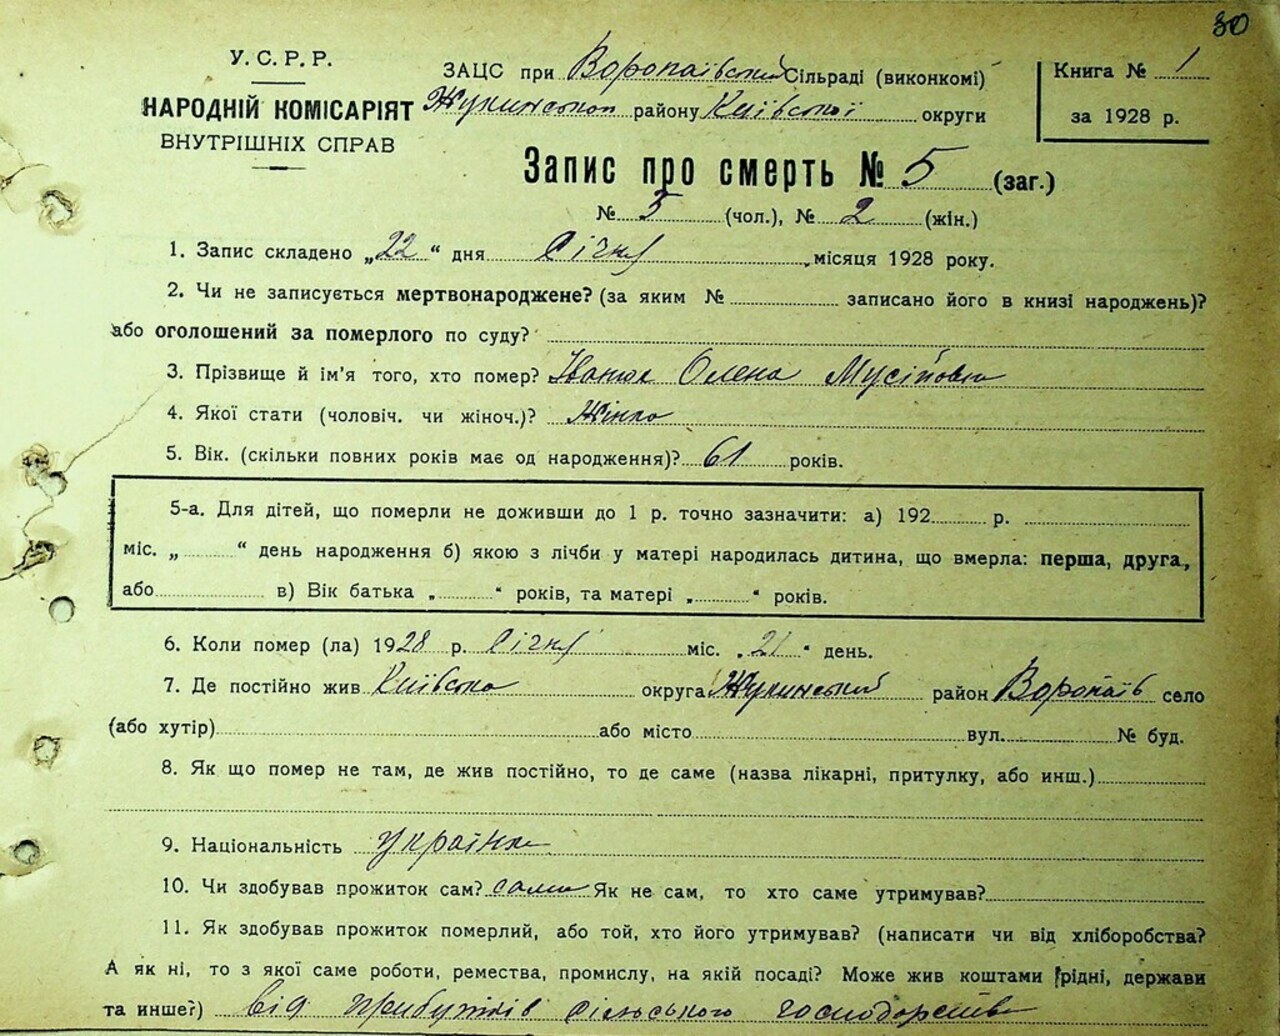 30
У.С.Р.Р.
НАРОДНІЙ КОМІСАРІЯТ
ВНУТРІШНІХ СПРАВ
ЗАЦС при Воропаївській Сільраді (виконкомі)
Жукинського району Київської округи
Книга № 1
за 1928 р.
Запис про смерть № 5 (заг.)
№ 3 (чол.), № 2 (жін.)
1. Запис складено „22“ дня Січня місяця 1928 року.
2. Чи не записується мертвонароджене? (за яким № записано його в книзі народжень)?
або оголошений за померлого по суду?
3. Прізвище й ім'я того, хто помер? Іванюк Олена Мусіївна
4. Якої стати (чоловіч. чи жіноч.)? Жінка
5. Вік. (скільки повних років має од народження)? 61 років.
5-а. Для дітей, що померли не доживши до 1 р. точно зазначити: а) 192 р.
міс. „ “ день народження б) якою з лічби у матері народилась дитина, що вмерла: перша, друга,
або в) Вік батька „ “ років, та матері „ “ років.
6. Коли помер (ла) 1928 р. Січня міс. „21“ день.
7. Де постійно жив Київська округа Жукинський район Воропаїв село
(або хутір) або місто вул. № буд.
8. Як що помер не там, де жив постійно, то де саме (назва лікарні, притулку, або инш.)
9. Національність українка
10. Чи здобував прожиток сам? сама Як не сам, то хто саме утримував?
11. Як здобував прожиток померлий, або той, хто його утримував? (написати чи від хліборобства?
А як ні, то з якої саме роботи, ремества, промислу, на якій посаді? Може жив коштами рідні, держави
та инше?) від прибутків сільського господарства